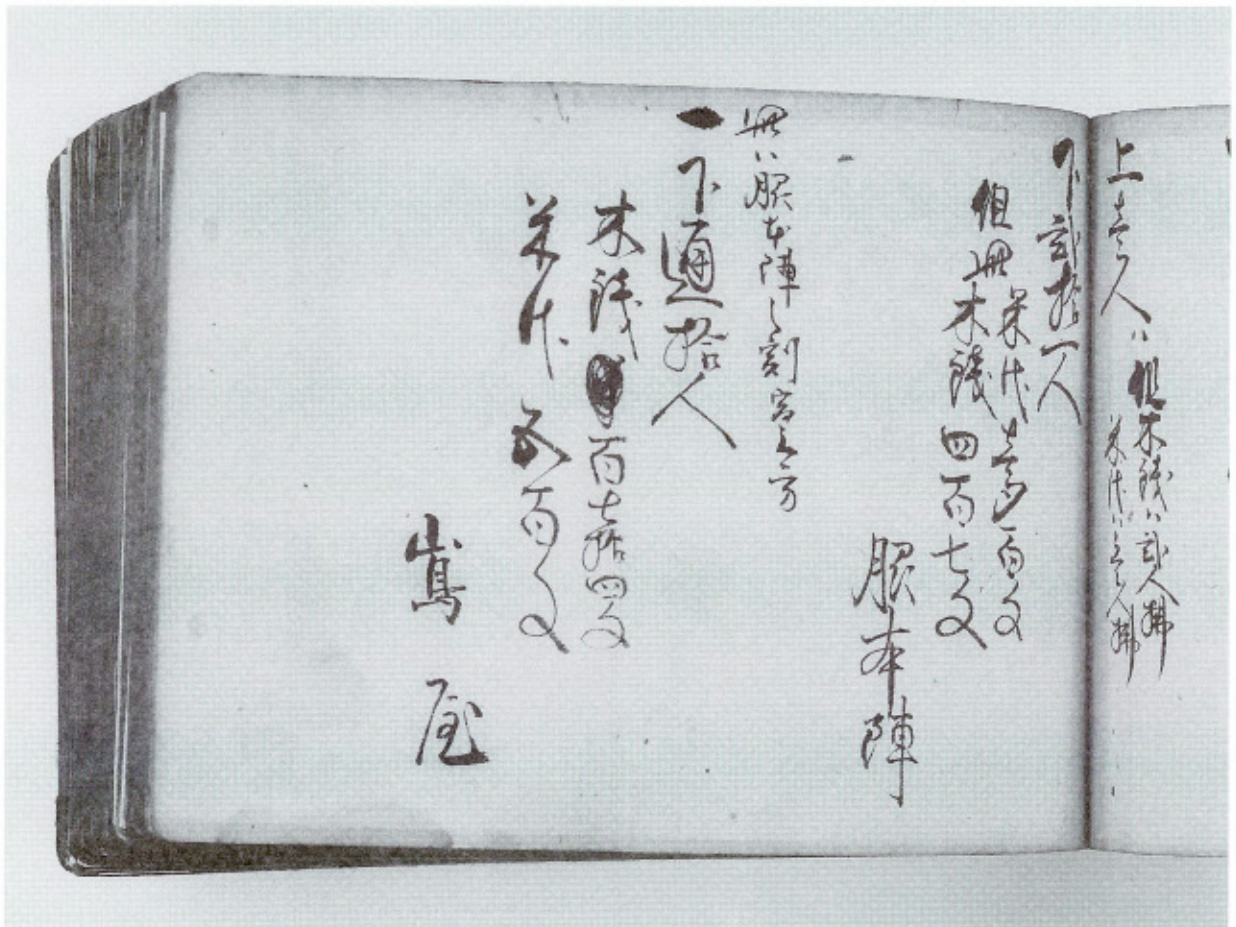 上壱人ハ
但木銭ハ弐人拂
米代ハ三人拂
下弐拾一人
但 米代壱〆百文
此木銭四百七文
脇本陣
此ハ脇本陣之割宿之方
一下通拾人
木銭百七拾四文
米代五百文
嶌屋